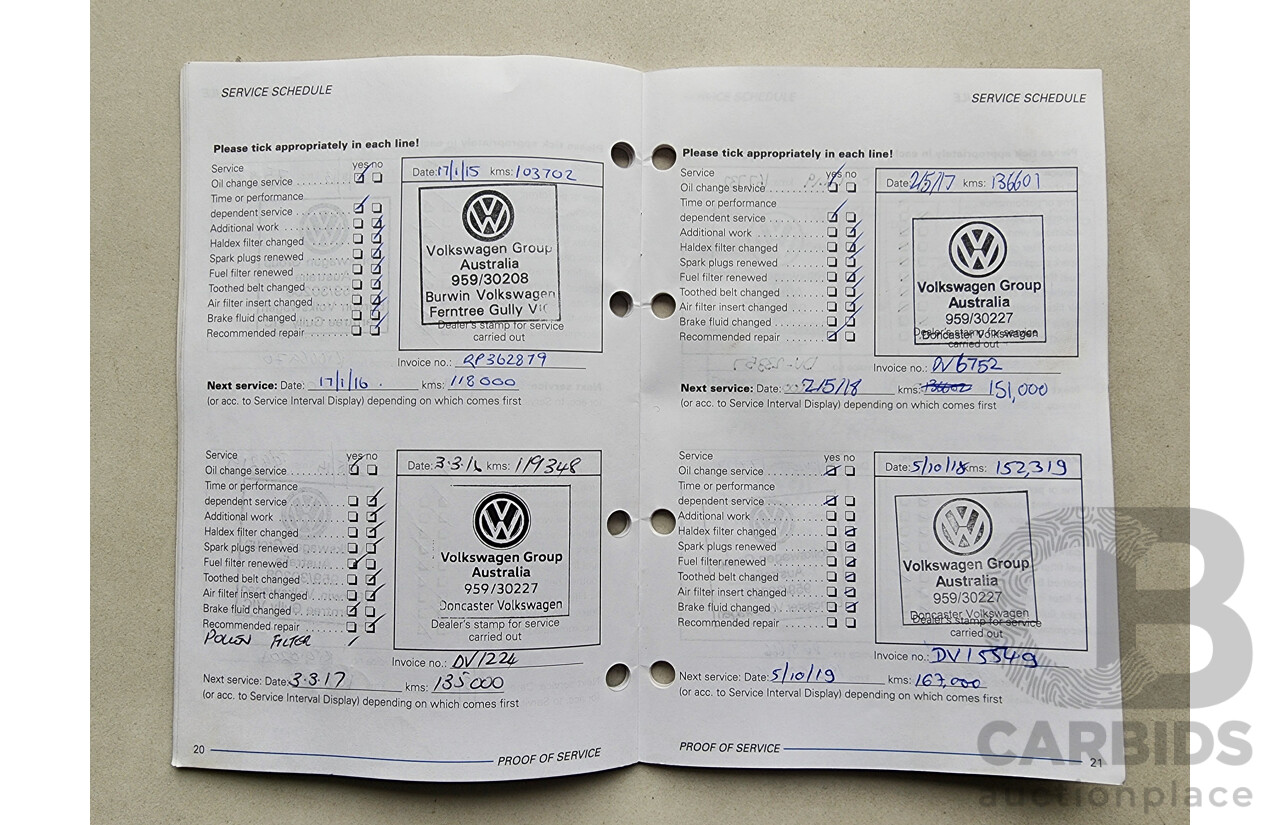 SERVICE SCHEDULE
Please tick appropriately in each line!
Service yes no
Oil change service
Time or performance
dependent service
Additional work
Haldex filter changed
Spark plugs renewed
Fuel filter renewed
Toothed belt changed
Air filter insert changed
Brake fluid changed
Recommended repair
Date: 17/1/15 kms: 103702
Volkswagen Group
Australia
959/30208
Burwin Volkswagen
Ferntree Gully VIC
Dealer's stamp for service
carried out
Invoice no.: RP362879
Next service: Date: 17/1/16. kms: 118000
(or acc. to Service Interval Display) depending on which comes first
Service yes no
Oil change service
Time or performance
dependent service
Additional work
Haldex filter changed
Spark plugs renewed
Fuel filter renewed
Toothed belt changed
Air filter insert changed
Brake fluid changed
Recommended repair
POLLEN FILTER
Date: 3.3.16 kms: 119348
Volkswagen Group
Australia
959/30227
Doncaster Volkswagen
Dealer's stamp for service
carried out
Invoice no.: DV1224
Next service: Date: 3.3.17 kms: 135000
(or acc. to Service Interval Display) depending on which comes first
20 PROOF OF SERVICE
SERVICE SCHEDULE
Please tick appropriately in each line!
Service yes no
Oil change service
Time or performance
dependent service
Additional work
Haldex filter changed
Spark plugs renewed
Fuel filter renewed
Toothed belt changed
Air filter insert changed
Brake fluid changed
Recommended repair
Date: 2/5/17 kms: 136601
Volkswagen Group
Australia
959/30227
Doncaster Volkswagen
Dealer's stamp for service
carried out
Invoice no.: DV6752
Next service: Date: 2/5/18 kms: 151,000
(or acc. to Service Interval Display) depending on which comes first
Service yes no
Oil change service
Time or performance
dependent service
Additional work
Haldex filter changed
Spark plugs renewed
Fuel filter renewed
Toothed belt changed
Air filter insert changed
Brake fluid changed
Recommended repair
Date: 5/10/18 kms: 152,319
Volkswagen Group
Australia
959/30227
Doncaster Volkswagen
Dealer's stamp for service
carried out
Invoice no.: DV15549
Next service: Date: 5/10/19 kms: 167,000
(or acc. to Service Interval Display) depending on which comes first
PROOF OF SERVICE 21
CARBIDS
auctionplace